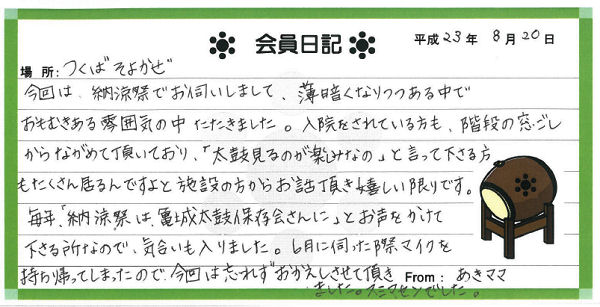 会員日記
平成23年 8月20日
場 所: つくば そよかぜ
今回は、納涼祭でお伺いしまして、薄暗くなりつつある中で
おもむきある雰囲気の中 たたきました。入院をされている方も、階段の窓ごし
からながめて頂いており、「太鼓見るのが楽しみなの」と言って下さる方
もたくさん居るんですよと施設の方からお話頂き嬉しい限りです。
毎年、「納涼祭は、亀城太鼓保存会さんに」とお声をかけて
下さる所なので、気合いも入りました。6月に伺った際マイクを
持ち帰ってしまったので、今回は忘れずおかえしさせて頂き
ました。スミマセンでした。
From: あきママ